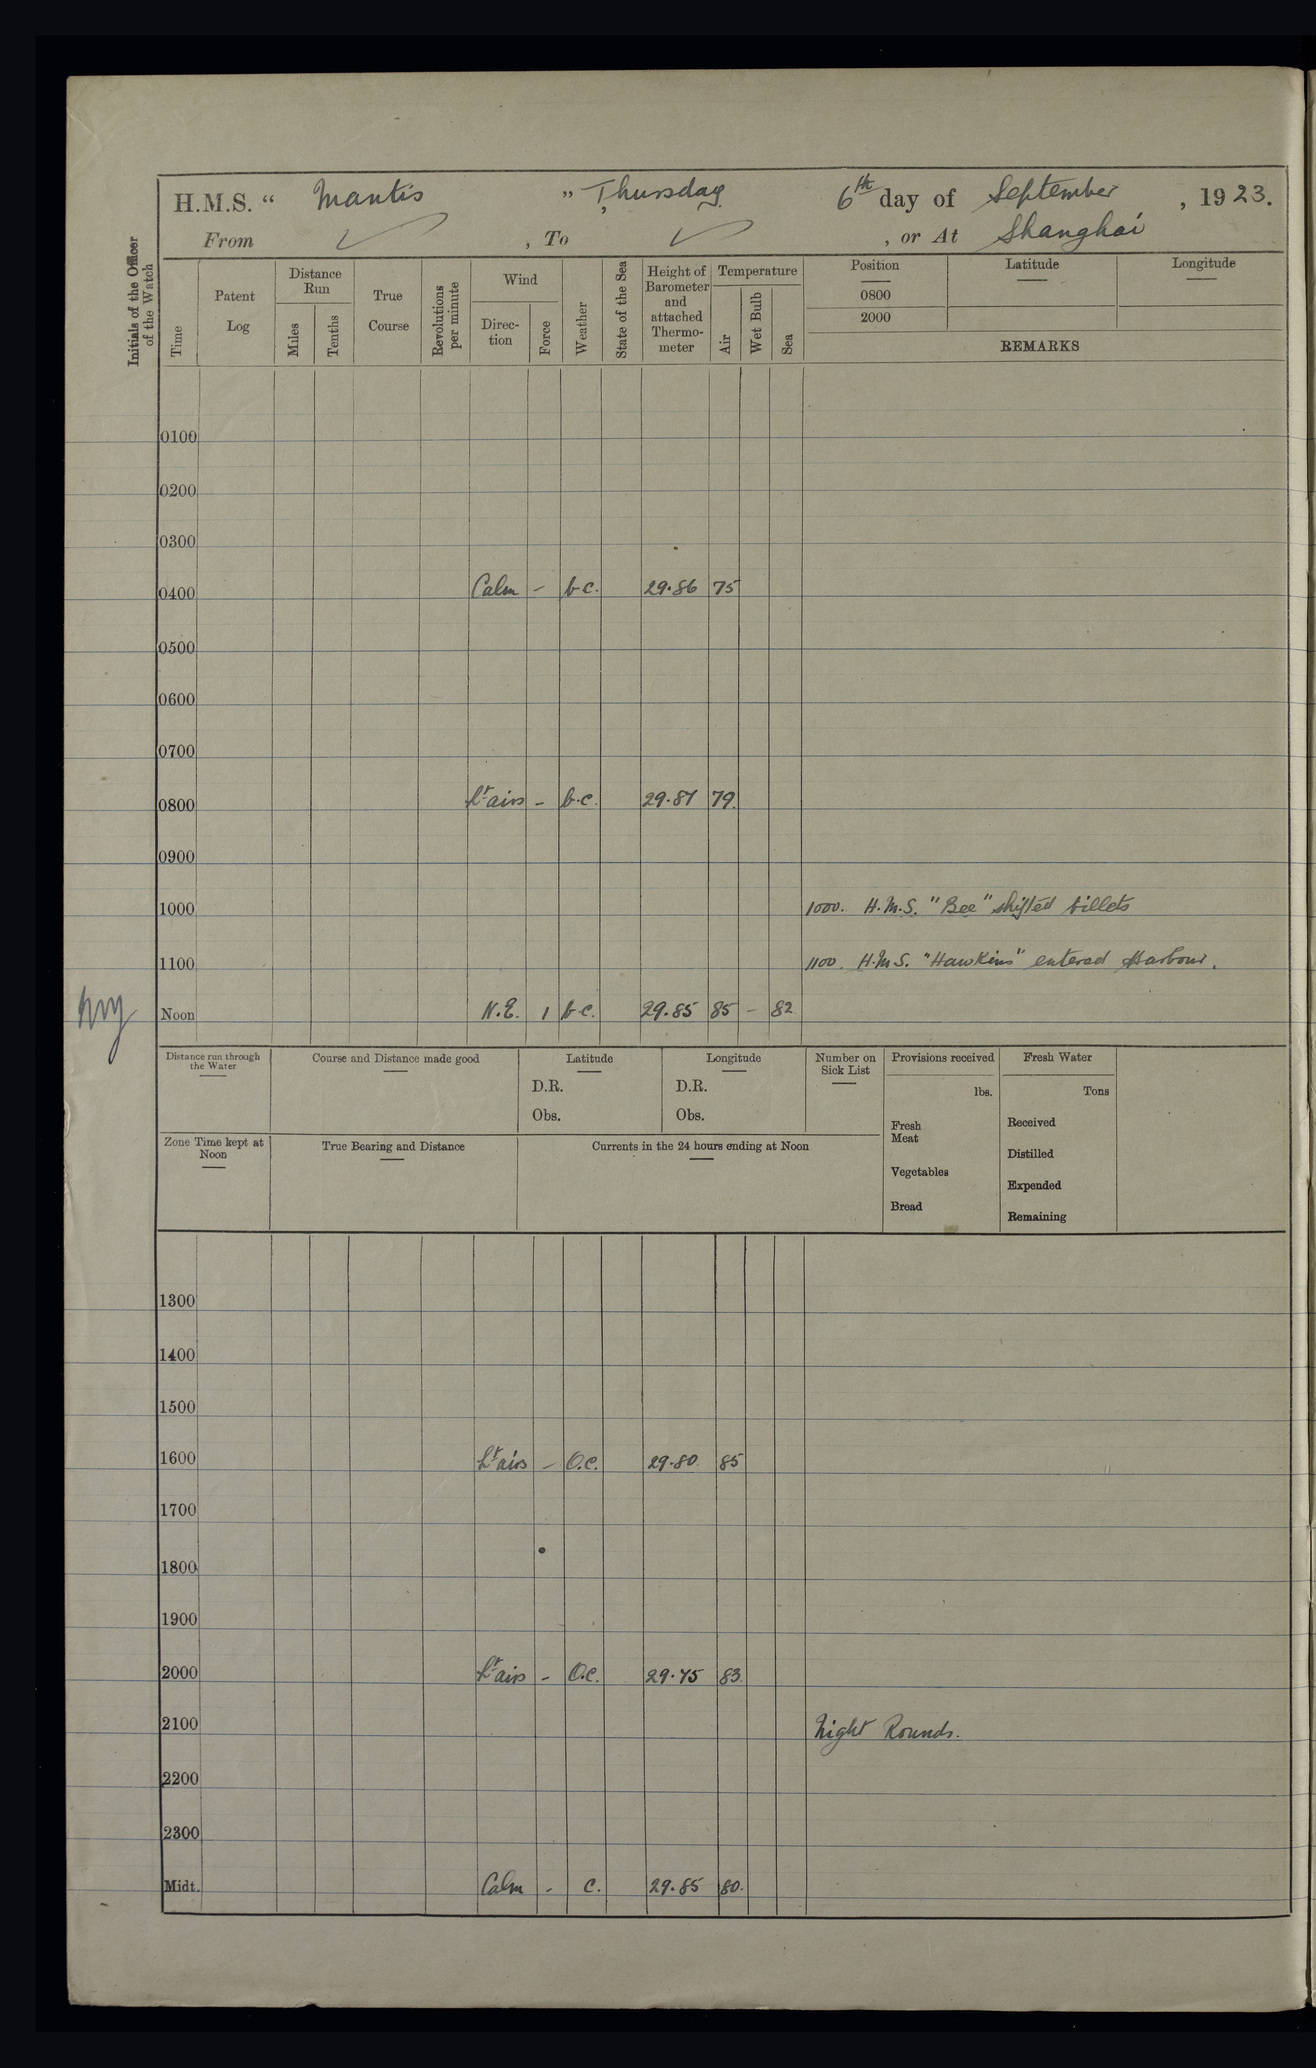 H.M.S. “ Mantis ” Thursday, 6th day of September, 1923.
From ✓, To ✓, or At Shanghai
Initials of the Officer of the Watch
Time
Patent Log
Distance Run
Miles
Tenths
True Course
Revolutions per minute
Wind
Direc-tion
Force
Weather
State of the Sea
Height of Barometer and attached Thermo-meter
Temperature
Air
Wet Bulb
Sea
Position Latitude Longitude
0800
2000
REMARKS
0100
0200
0300
0400 Calm – b.c. 29.86 75
0500
0600
0700
0800 Lt airs – b.c. 29.87 79
0900
1000 1000. H.M.S. "Bee" shifted billets
1100 1100. H.M.S. "Hawkins" entered Harbour.
Noon N.E. 1 b.c. 29.85 85 – 82
Distance run through the Water
Course and Distance made good
Latitude
D.R.
Obs.
Longitude
D.R.
Obs.
Number on Sick List
Provisions received
lbs.
Fresh Meat
Vegetables
Bread
Fresh Water
Tons
Received
Distilled
Expended
Remaining
Zone Time kept at Noon
True Bearing and Distance
Currents in the 24 hours ending at Noon
1300
1400
1500
1600 Lt airs – O.c. 29.80 85
1700
1800
1900
2000 Lt airs – O.c. 29.75 83
2100 Night Rounds.
2200
2300
Midt. Calm - c. 29.85 80.